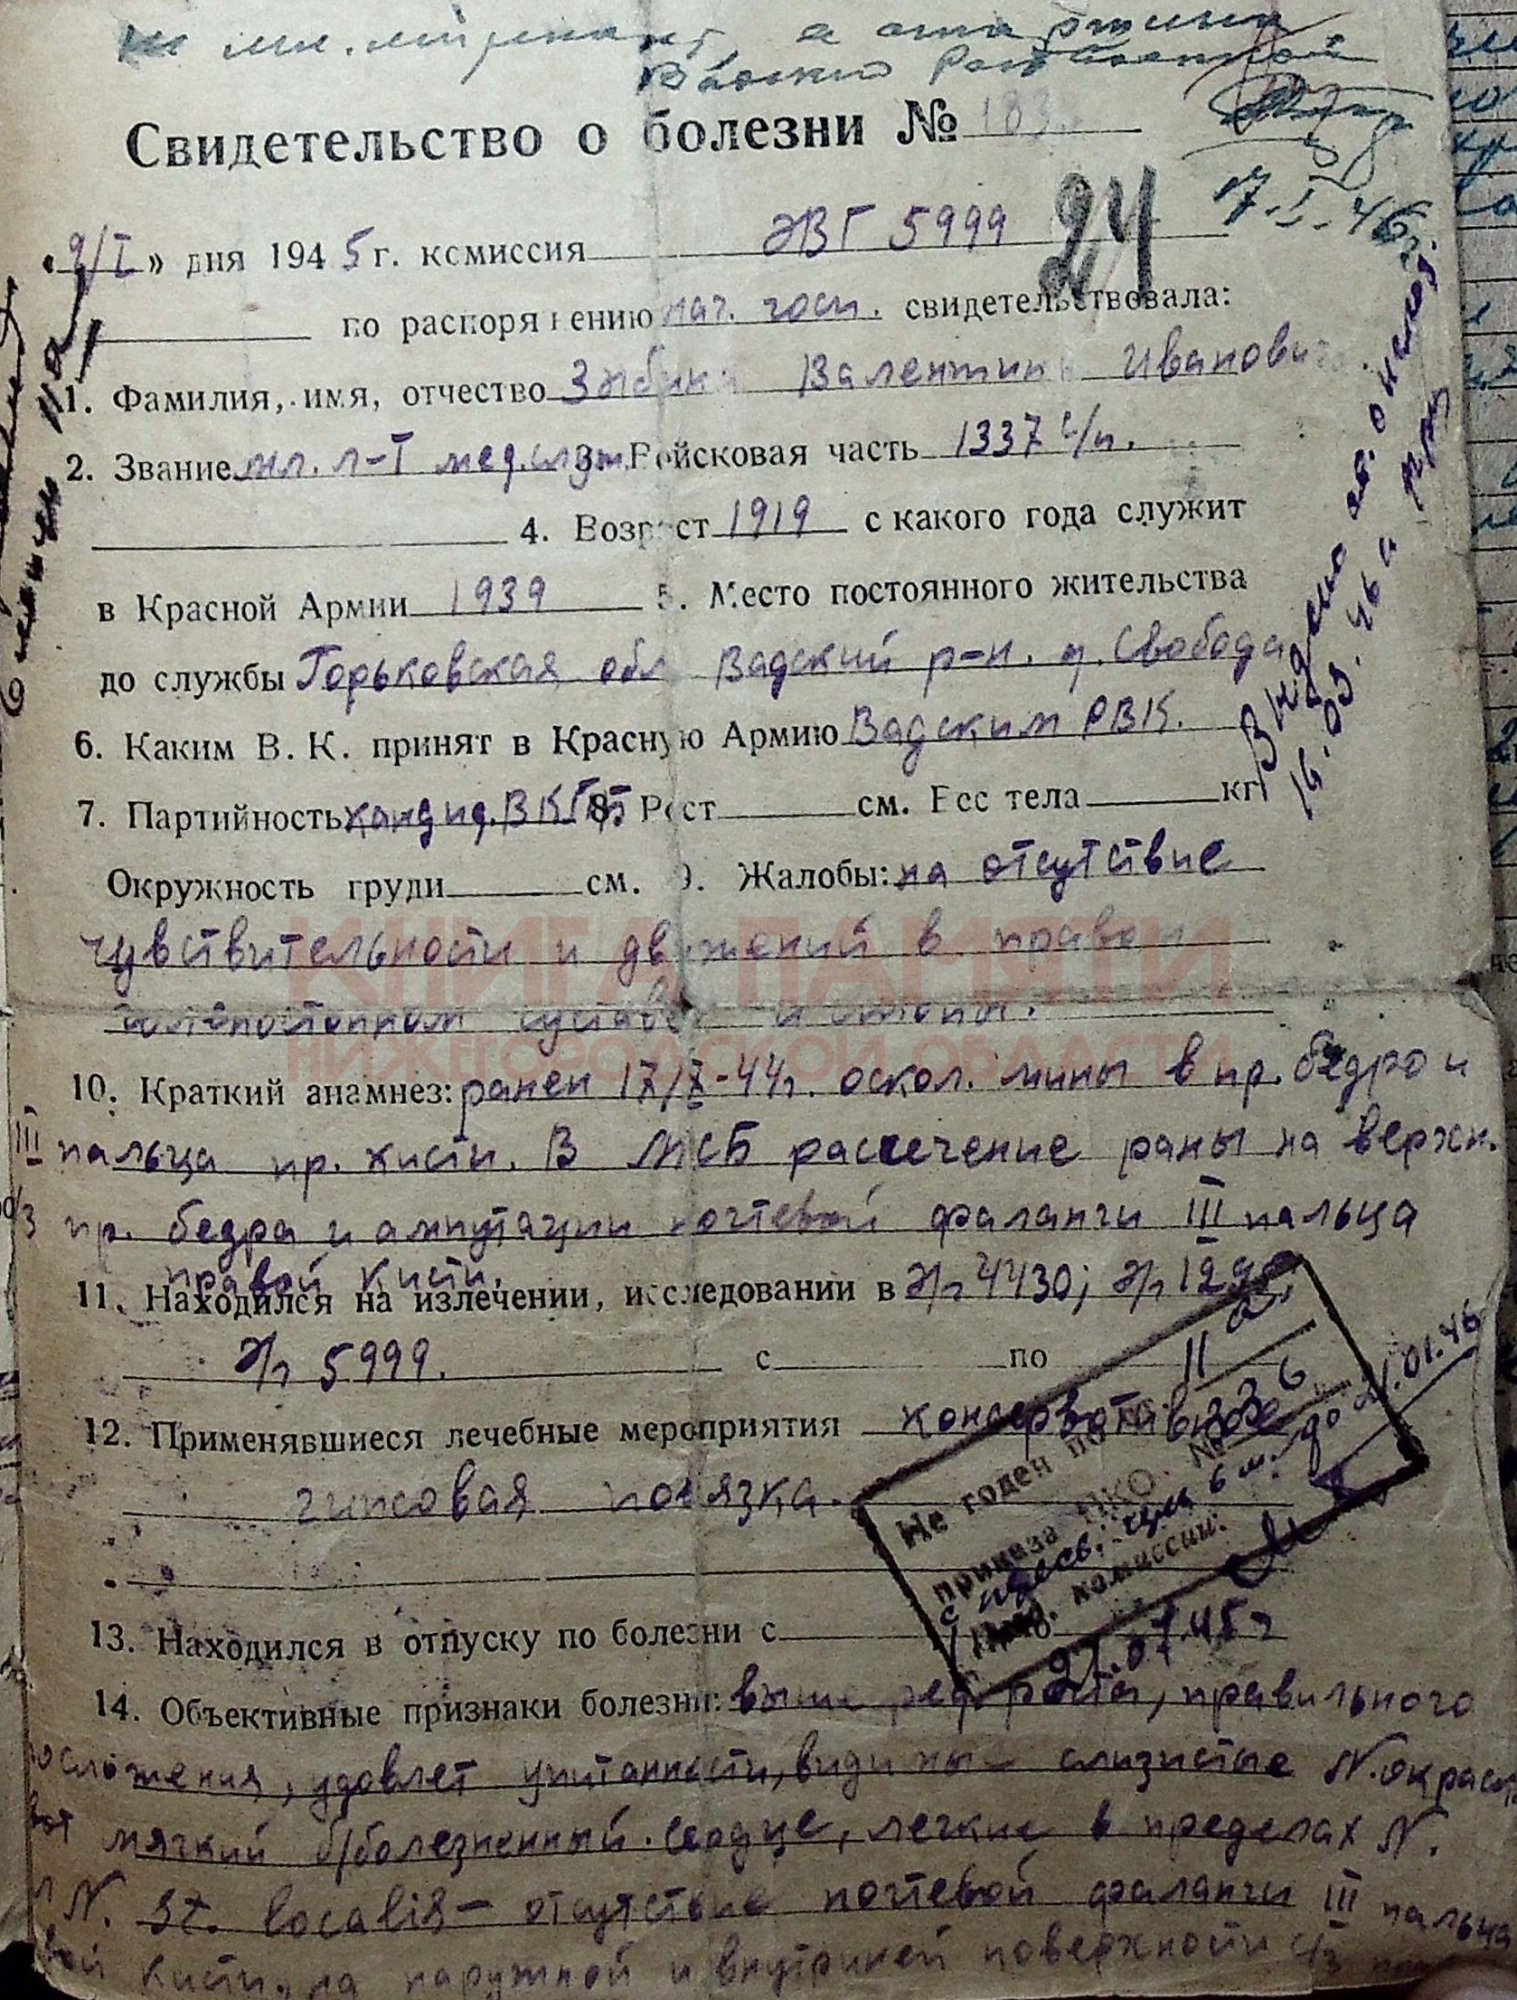 мл. лейтенант, а старшина
Свидетельство о болезни № 183
17.I.46г.
24
«9/I» дня 1945 г. комиссия ЭВГ 5999
по распоряжению нач. госп. свидетельствовала:
1. Фамилия, имя, отчество Зыбин Валентин Иванович
2. Звание мл. л-т мед.служ. 3. Войсковая часть 1337 с/п.
4. Возраст 1919 с какого года служит
в Красной Армии 1939 5. Место постоянного жительства
до службы Горьковская обл Вадский р-н. п. Свобода
6. Каким В. К. принят в Красную Армию Вадским РВК.
7. Партийность кандид. ВКПб 8. Рост см. Вес тела кг
Окружность груди см. 9. Жалобы: на отсутствие
чувствительности и движений в правом
голеностопном суставе и стопы.
КНИГА ПАМЯТИ
НИЖЕГОРОДСКОЙ ОБЛАСТИ
10. Краткий анамнез: ранен 17/X-44г. оскол. мины в пр. бедро и
III пальца пр. кисти. В МСБ рассечение раны на верхн.
/3 пр. бедра и ампутации ногтевой фаланги III пальца
правой кисти.
11. Находился на излечении, исследовании в Э/г 4430; Э/г
Э/г 5999. с по
12. Применявшиеся лечебные мероприятия консервативное
гипсовая повязка.
Не годен по ст. 11
приказа НКО. № 336
с переосв. через 6 м. до 21.01.46
Пред. комиссии:
21.07.45г
13. Находился в отпуску по болезни с
14. Объективные признаки болезни: выше сред. роста, правильного
осложения, удовлет упитанности, видимые слизистые N. окрас
вот мягкий б/болезненный. Сердце, легкие в пределах N.
N. St. localis — отсутствие ногтевой фаланги III пальца
вой кисти, на наружной и внутриней поверхности с/з
16.03.46